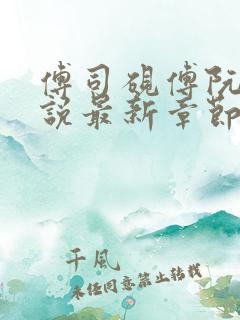 傅司砚傅阮
说最新章节
千风
未经同意禁止转载